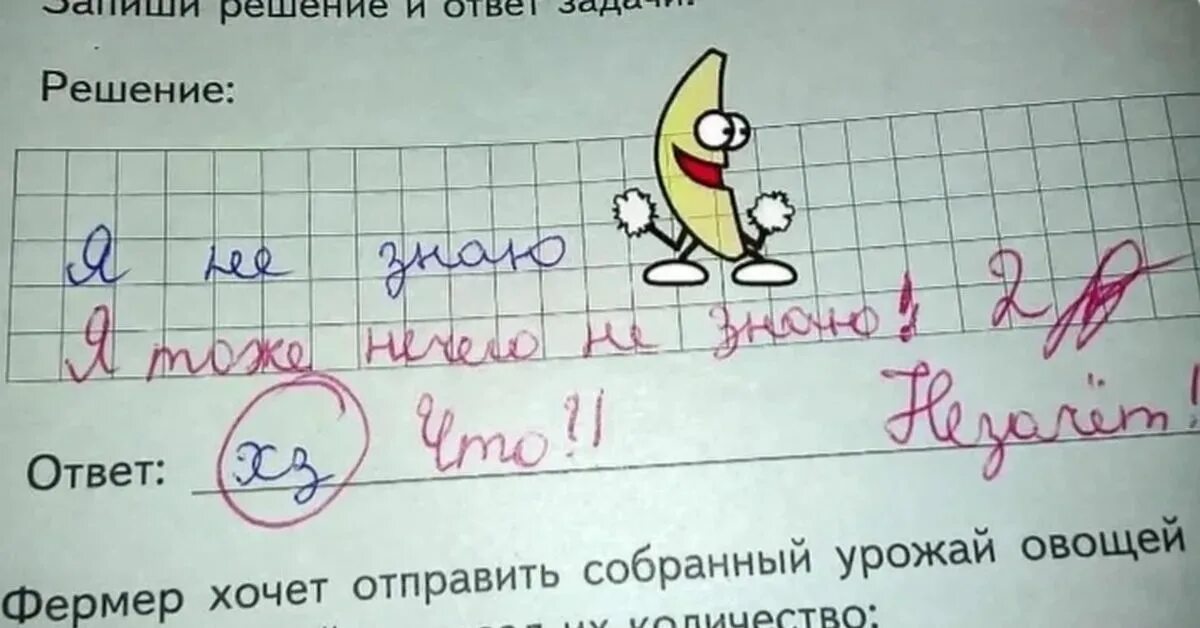 Запиши решение и ответ задачи.
Решение:
Я не знаю
Я тоже нечего не знаю! 2
Что!!
Незачёт!
Ответ: хз
Фермер хочет отправить собранный урожай овощей
их количество: